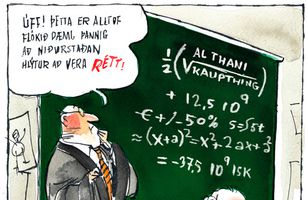 ÚFF! ÞETTA ER ALLTOF
FLÓKIÐ DÆMI, ÞANNIG
AÐ NIÐURSTAÐAN
HLÝTUR AÐ VERA RÉTT!
½ (AL THANI / √KAUPTHING)
+ 12,5 10⁹
€ + / - 50% S=√st
≈ (x+a)² = x² + 2ax + ²/₃
= -37,5 10⁹ ISK